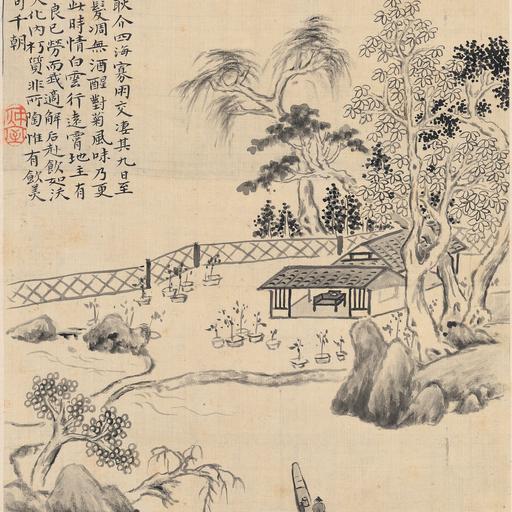 耿介四海寡朋交淒其九日至
髮凋無酒醒對菊風味乃更
此時情白雲行遠霄地主有
良已勞而我適解后赴飲如沃
化內朽質非所陶惟有飲美
可千朝